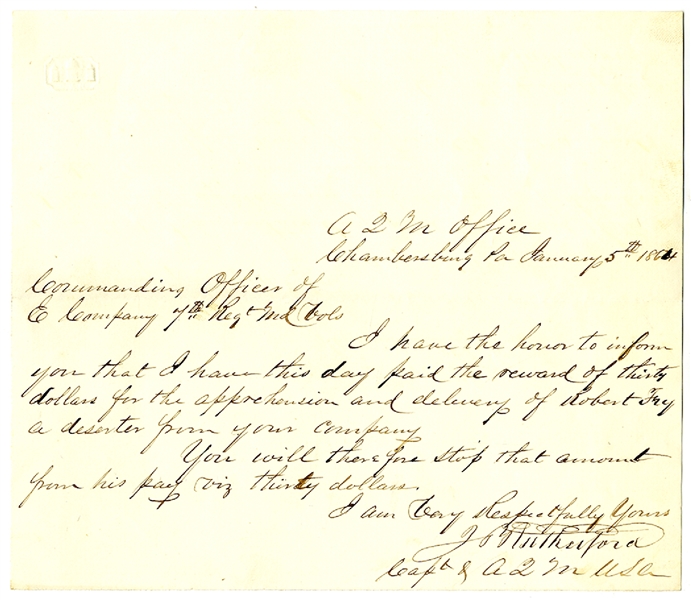 A Q M Office
Chambersburg Pa January 5th 1864
Commanding Officer of
E Company 7th Regt Md Vols
I have the honor to inform
you that I have this day paid the reward of thirty
dollars for the apprehension and delivery of Robert Fry
a deserter from your company
You will therefore stop that amount
from his pay viz thirty dollars.
I am Very Respectfully Yours
J B Rutherford
Capt & A Q M USA